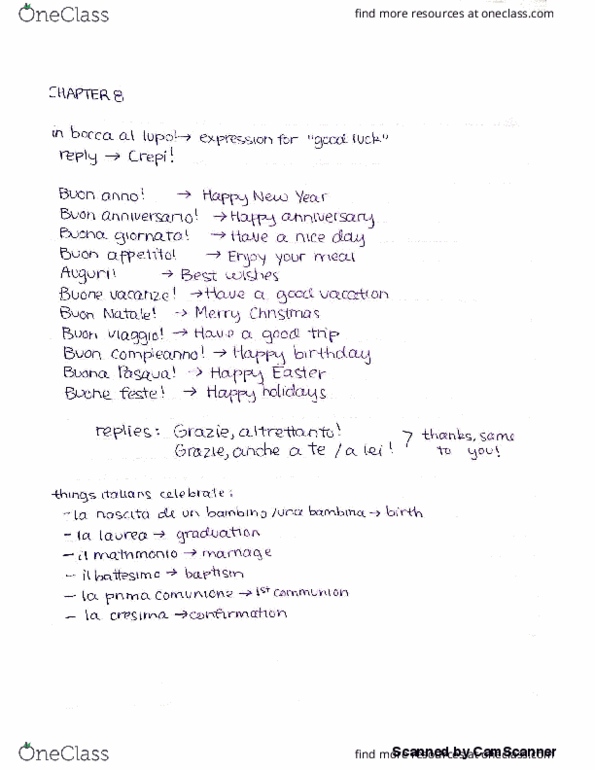 OneClass
find more resources at oneclass.com
CHAPTER 8
in bocca al lupo! → expression for "good luck"
reply → Crepi!
Buon anno! → Happy New Year
Buon anniversario! → Happy anniversary
Buona giornata! → Have a nice day
Buon appetito! → Enjoy your meal
Auguri! → Best wishes
Buone vacanze! → Have a good vacation
Buon Natale! → Merry Christmas
Buon viaggio! → Have a good trip
Buon compleanno! → Happy birthday
Buona Pasqua! → Happy Easter
Buone feste! → Happy holidays
replies: Grazie, altrettanto!
Grazie, anche a te / a lei! > thanks, same to you!
things italians celebrate:
- la nascita de un bambino / una bambina → birth
- la laurea → graduation
- il matrimonio → marriage
- il battesimo → baptism
- la prima comunione → 1st communion
- la cresima → confirmation
OneClass
find more resources at oneclass.com
Scanned by CamScanner